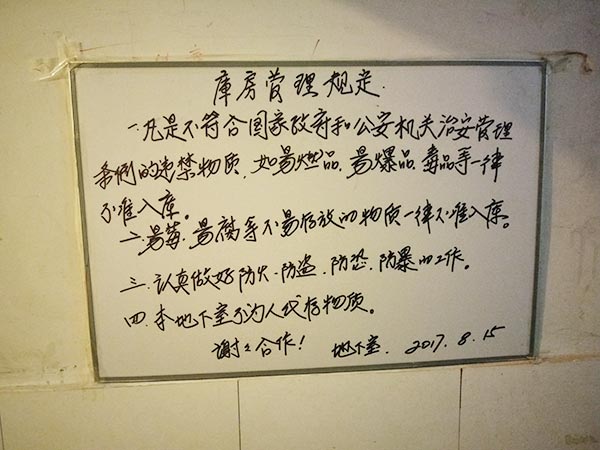 库房管理规定.
一.凡是不符合国家政府和公安机关治安管理
条例的违禁物质.如易燃品.易爆品.毒品等一律
不准入库。
二.易霉.易腐等不易存放的物质一律不准入库。
三.认真做好防火.防盗.防恐.防暴的工作。
四.本地下室可为人代存物质。
谢谢合作! 地下室. 2017.8.15